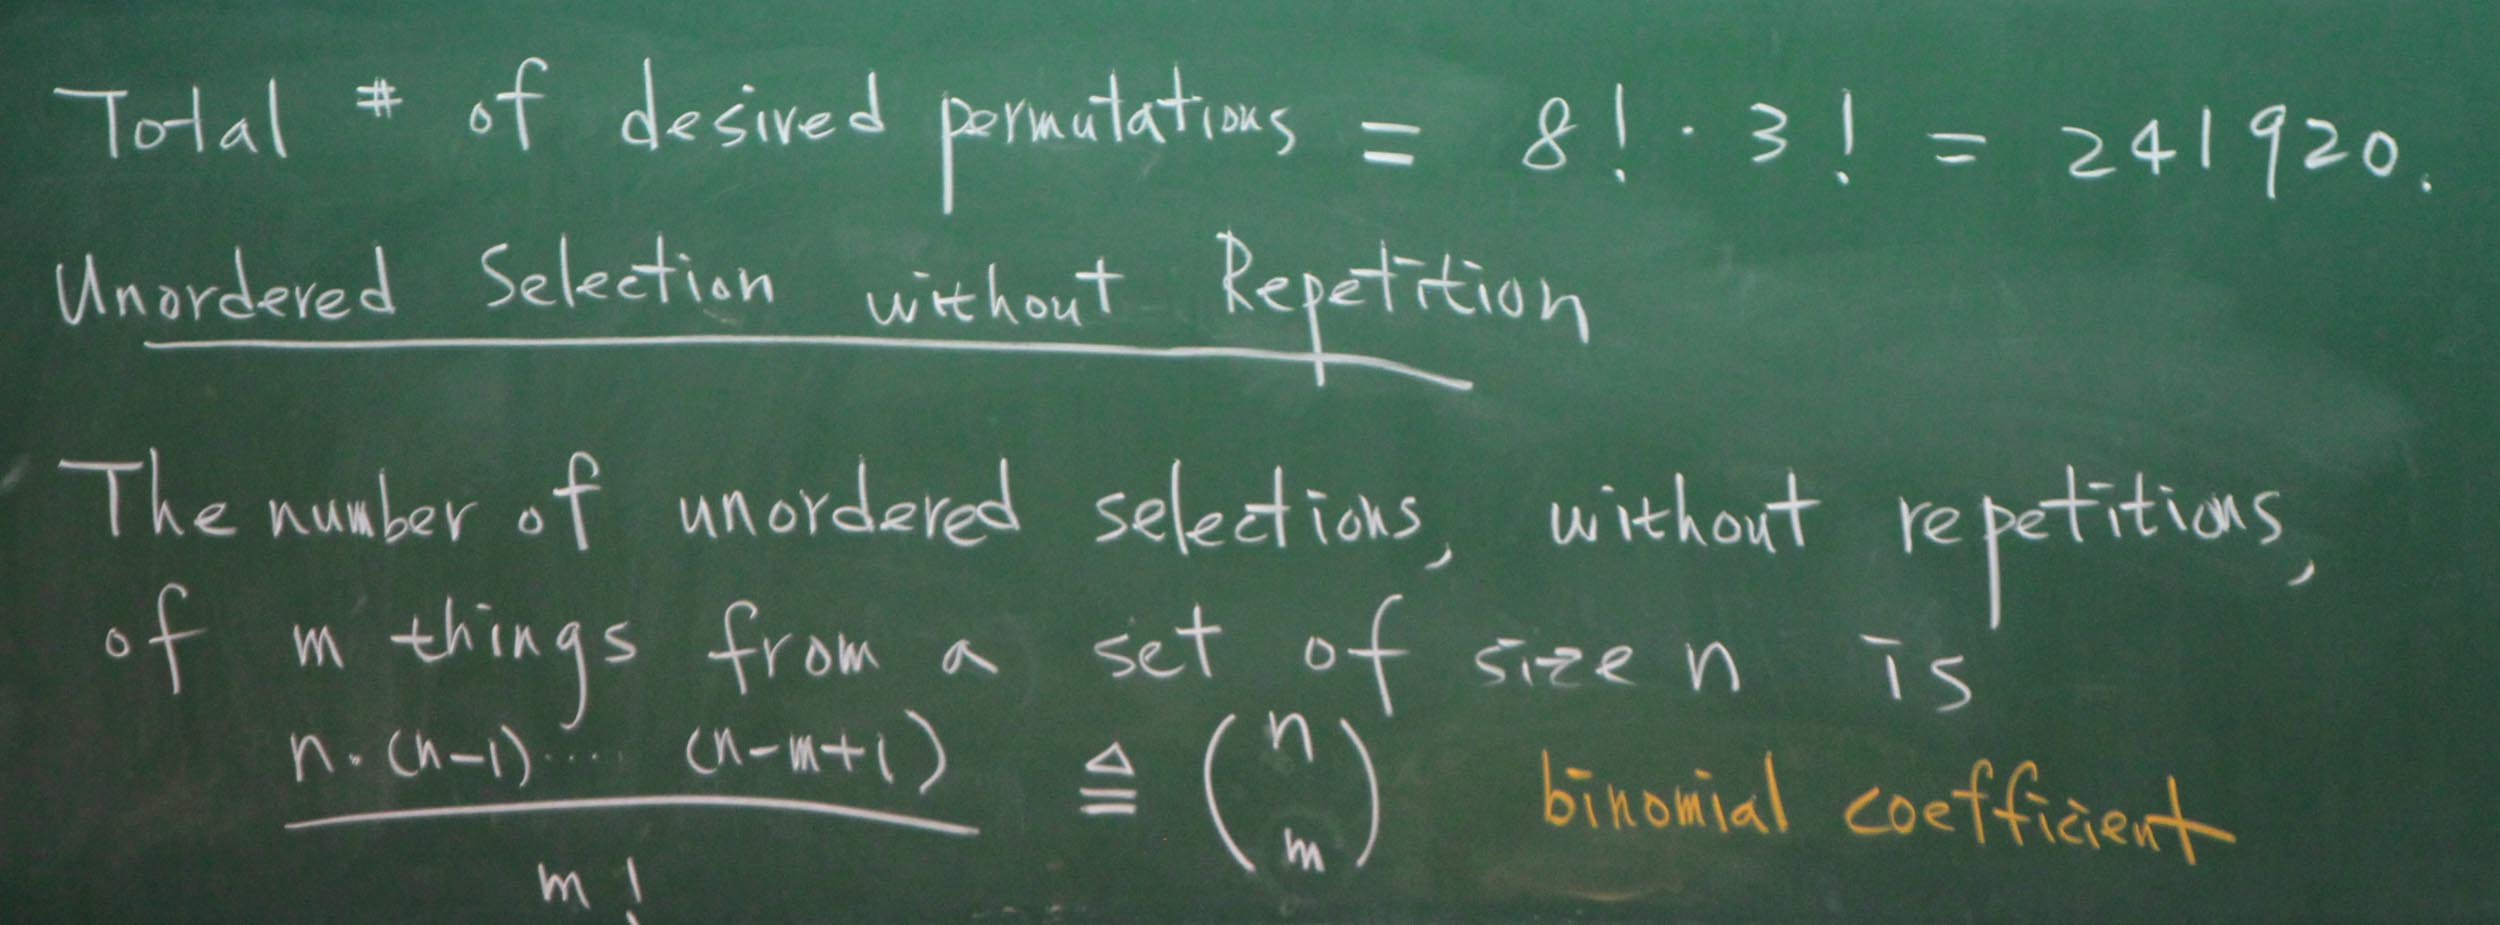 Total # of desired permutations = 8! · 3! = 241920.
Unordered Selection without Repetition
The number of unordered selections, without repetitions,
of m things from a set of size n is
n·(n-1)···· (n-m+1) / m! ≜ (n m) binomial coefficient